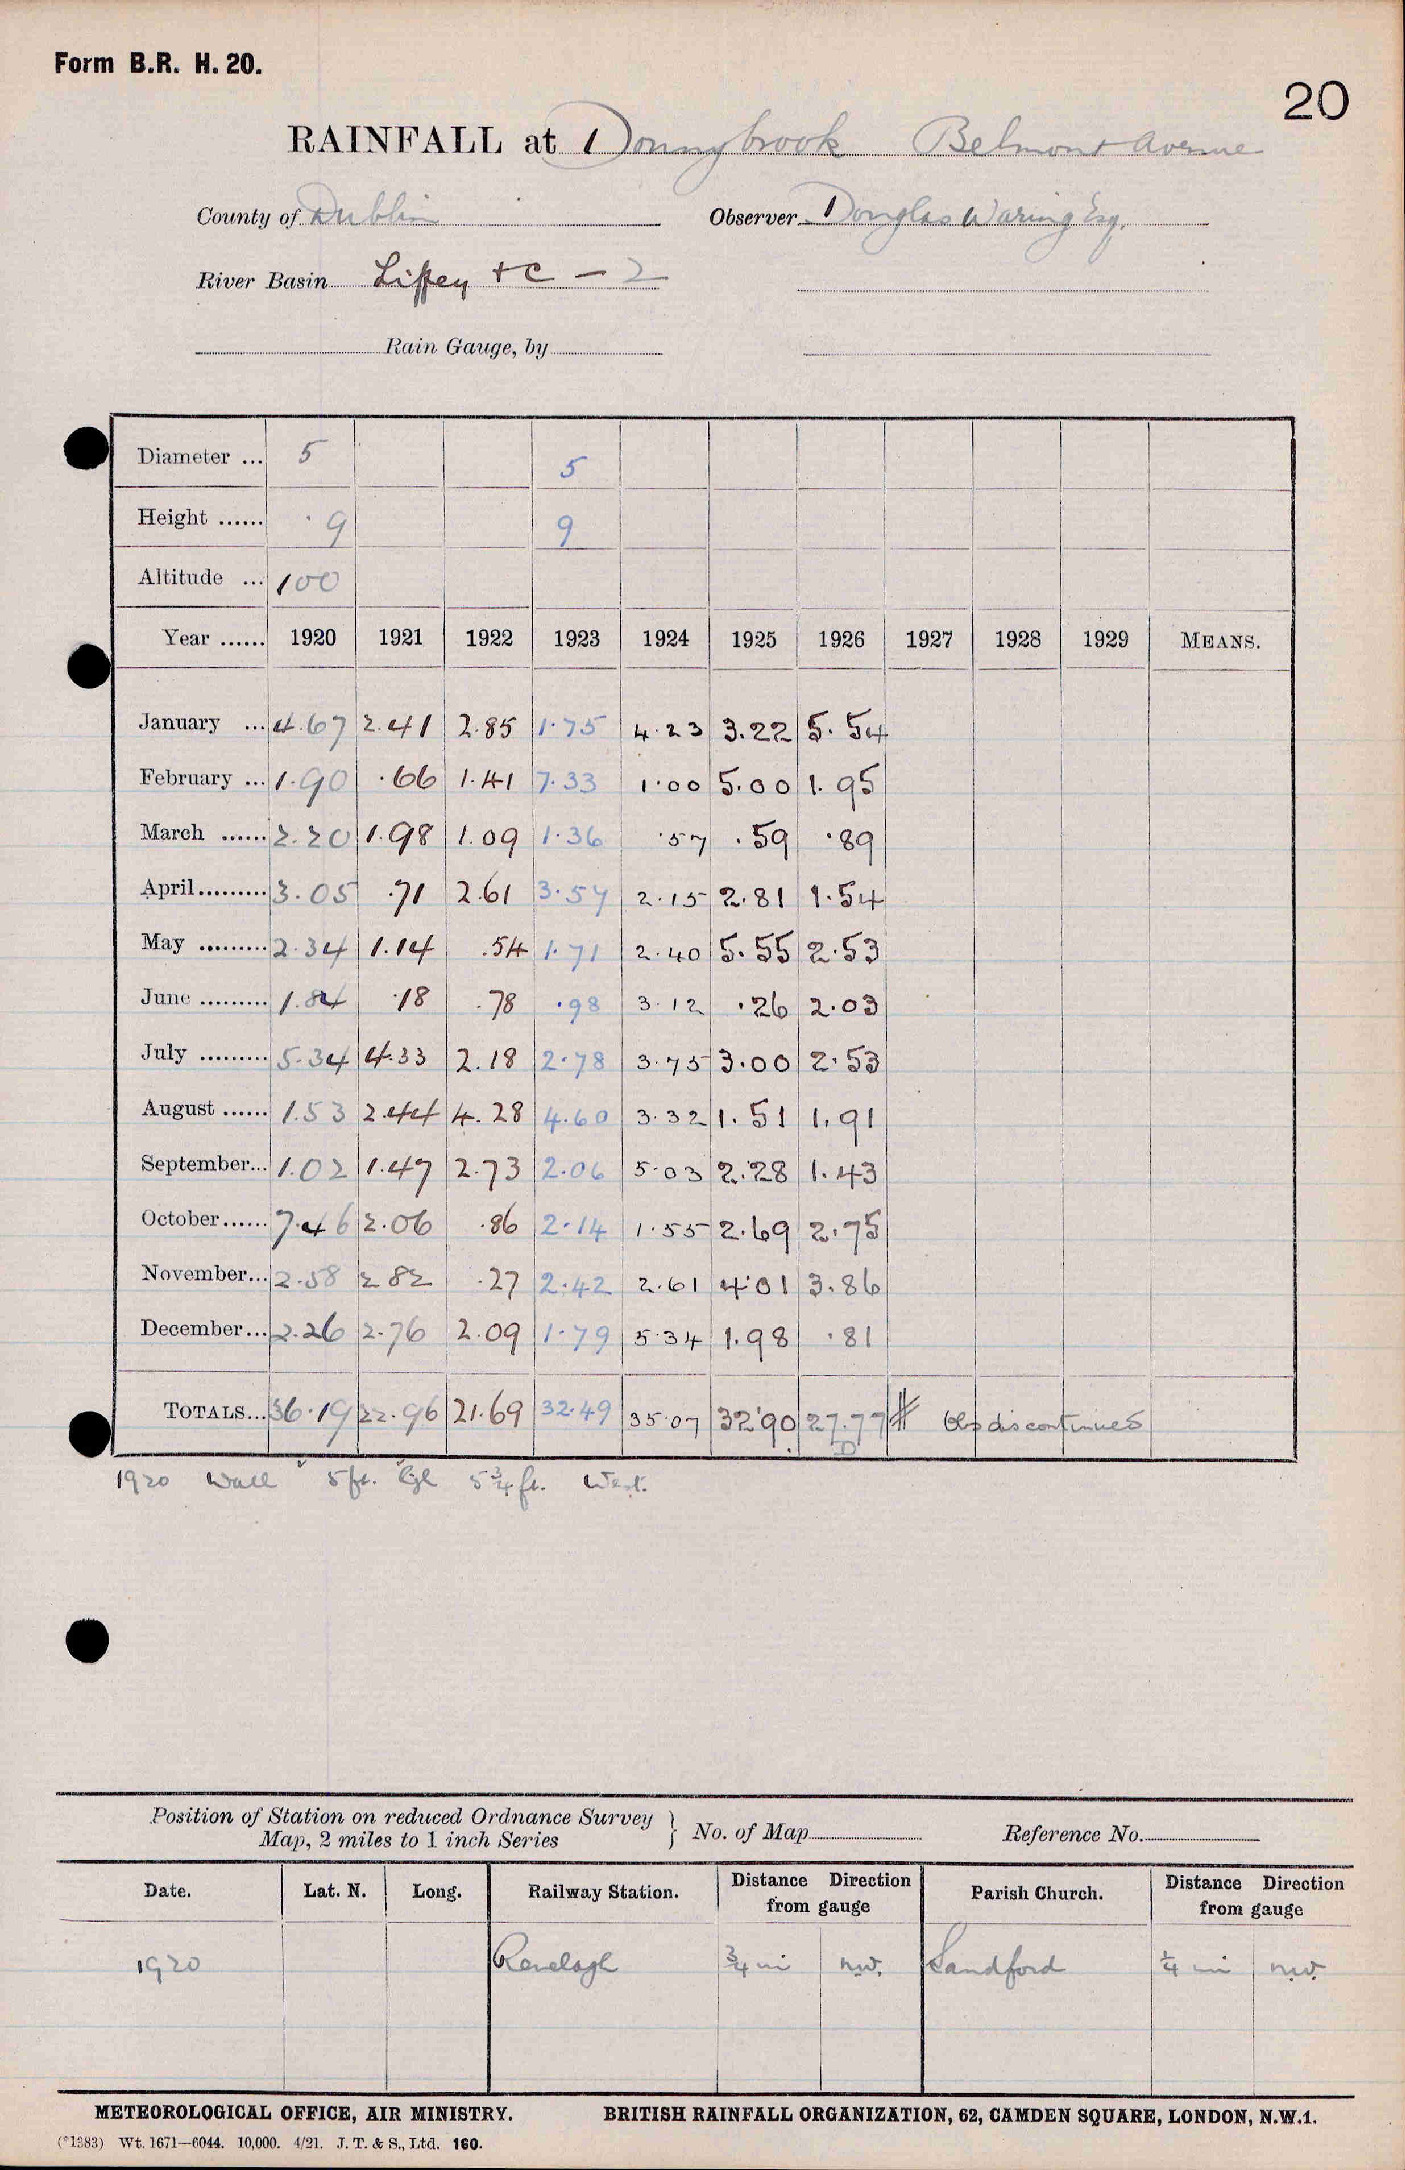 Form B.R. H. 20.
20
RAINFALL at Donnybrook Belmont Avenue
County of Dublin Observer Douglas Waring Esq.
River Basin Liffey + C — 2
Rain Gauge, by
Diameter ... 5 5
Height ...... ·9 9
Altitude ... 100
Year ...... 1920 1921 1922 1923 1924 1925 1926 1927 1928 1929 MEANS.
January ... 4.67 2.41 2.85 1.75 4.23 3.22 5.54
February ... 1.90 .66 1.41 7.33 1.00 5.00 1.95
March ...... 2.20 1.98 1.09 1.36 .57 .59 .89
April ......... 3.05 .71 2.61 3.57 2.15 2.81 1.54
May ......... 2.34 1.14 .54 1.71 2.40 5.55 2.53
June ......... 1.84 .18 .78 .98 3.12 .26 2.03
July ......... 5.34 4.33 2.18 2.78 3.75 3.00 2.53
August ...... 1.53 2.44 4.28 4.60 3.32 1.51 1.91
September... 1.02 1.47 2.73 2.06 5.03 2.28 1.43
October...... 7.46 2.06 .86 2.14 1.55 2.69 2.75
November... 2.58 2.82 .27 2.42 2.61 4.01 3.86
December... 2.26 2.76 2.09 1.79 5.34 1.98 .81
TOTALS... 36.19 22.96 21.69 32.49 35.07 32.90 27.77 # Obs discontinued
D
1920 Wall 5 ft. high 5¾ ft. West.
Position of Station on reduced Ordnance Survey
Map, 2 miles to 1 inch Series } No. of Map Reference No.
Date. Lat. N. Long. Railway Station. Distance Direction from gauge Parish Church. Distance Direction from gauge
1920 Ranelagh ¾ mi N.W. Sandford ¼ mi N.W.
METEOROLOGICAL OFFICE, AIR MINISTRY. BRITISH RAINFALL ORGANIZATION, 62, CAMDEN SQUARE, LONDON, N.W.1.
(*1383) Wt. 1671—6044. 10,000. 4/21. J. T. & S., Ltd. 160.